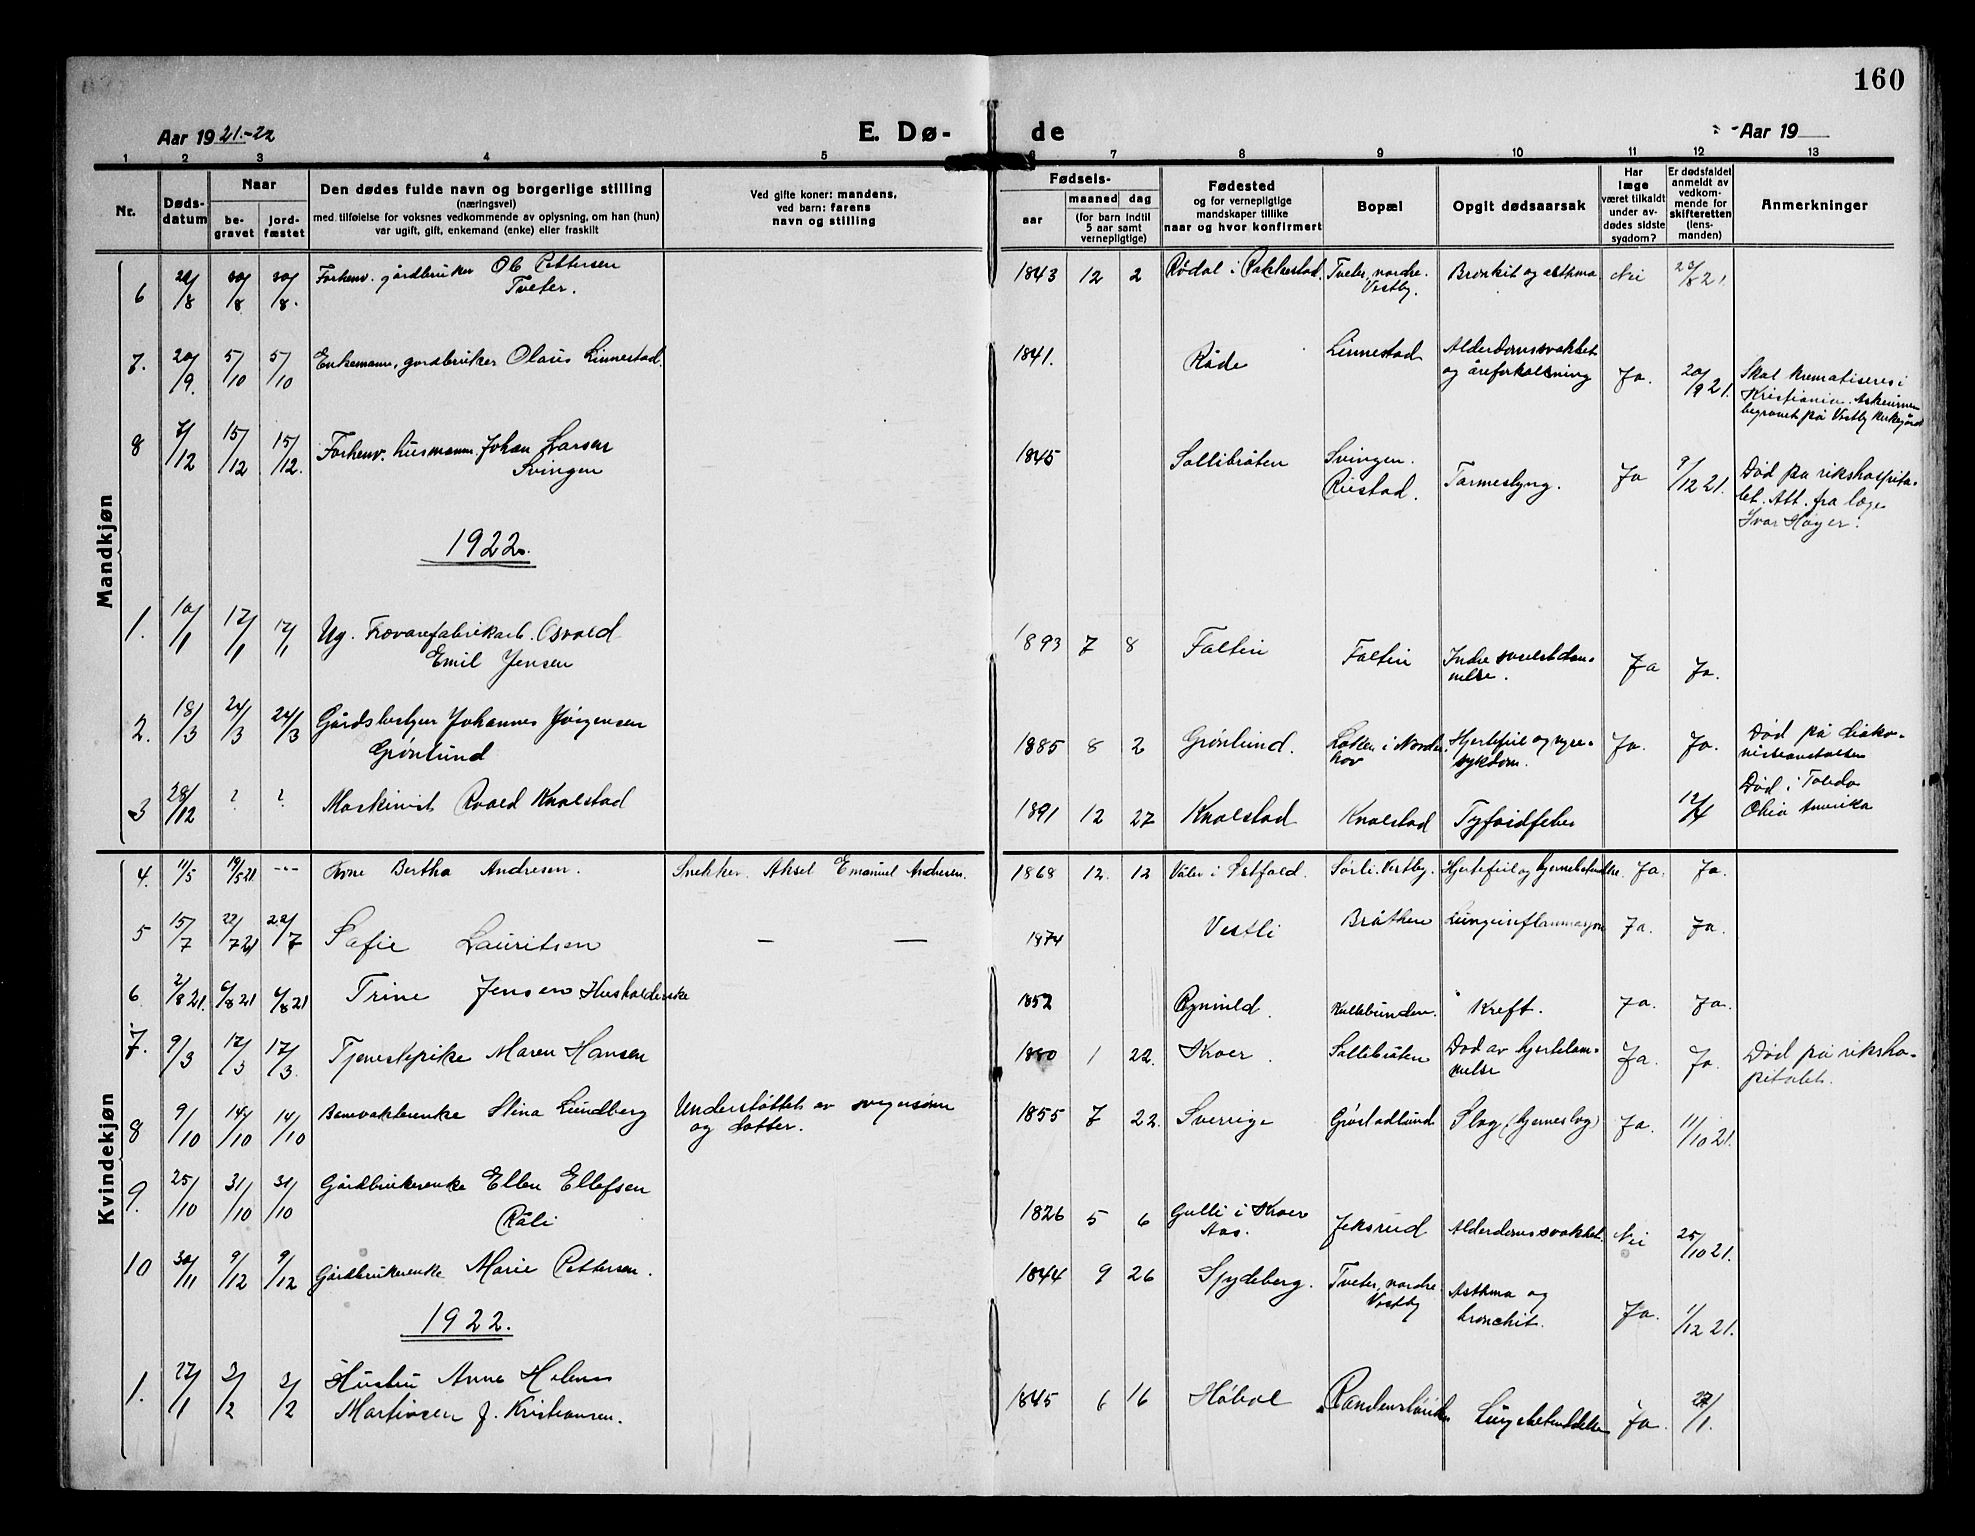 160
Aar 1921.-22
E. Dø-
de
Aar 19
1 2 3 4 5 6 7 8 9 10 11 12 13
Nr.
Døds-
datum
Naar
be-
gravet
jord-
fæstet
Den dødes fulde navn og borgerlige stilling
(næringsvei)
med tilføielse for voksnes vedkommende av oplysning, om han (hun)
var ugift, gift, enkemand (enke) eller fraskilt
Ved gifte koner: mandens,
ved barn: farens
navn og stilling
Fødsels-
aar
maaned dag
(for barn indtil
5 aar samt
vernepligtige)
Fødested
og for vernepligtige
mandskaper tillike
naar og hvor konfirmert
Bopæl
Opgit dødsaarsak
Har
læge
været tilkaldt
under av-
dødes sidste
sygdom?
Er dødsfaldet
anmeldt av
vedkom-
mende for
skifteretten
(lens-
manden)
Anmerkninger
Mandkjøn
6 22/8 30/8 30/8. Forhenv. gårdbruker Ole Pettersen
Tveter.
1843 12 2 Rødal i Rakkestad. Tveter, nordre.
Vestby. Bronkit og asthma Nei 23/8 21.
7. 20/9. 5/10 5/10 Enkemann, gardbruker Olaus Linnestad.
1841. Råde Linnestad Alderdomssvakhet
og åreforkalkning Ja. 20/9 21. Skal krematiseres i
Kristiania. Askeurnen
begravet på Vestby kirkegård
8 7/12 15/12 15/12. Forhenv. husmann Johan Larsen
Svingen
1845 Sollibråten Svingen.
Riistad. Tarmeslyng. Ja 9/12 21. Død på rikshospita-
let. Att. fra læge
Ivar Høyer.
1922.
1. 10/1 17/1 17/1 Ug. Trævarefabrikarb. Osvald
Emil Jensen
1893 7 8 Faltin Faltin Indre svulstdan-
nelse. Ja Ja.
2. 18/3 24/3 24/3 Gårdsbestyrer Johannes Jørgensen
Grønlund
1885 8 2 Grønlund. i Norder-
hov Hjertefeil og nyre-
sykdom. Ja. Ja. Død på diako-
nisseanstalten
3 28/12 ? ? Maskinist Roald Knalstad
1891 12 27 Knalstad Knalstad Tyfoidfeber 12/4 Død i Toledo
Ohio Amerika
Kvindekjøn
4. 11/5 19/5 21 --- Kone Bertha Andresen. Snekker Aksel Emanuel Andresen.
1868 12. 12 Våler i Østfold. Sørli. Vestby. Hjertefeil og hjernebetendlse. Ja. Ja.
5 15/7 22/7 21 22/7 Sofie Lauritsen — —
1874 Vestli Bråthen Lungeinflammasjon Ja. Ja.
6 2/8 21. 6/8 21 6/8 21 Trine Jensen Husholderske
1852 Rynnild. Kollebunden. Kreft. Ja. Ja.
7. 9/3 17/3 17/3. Tjenestepike Maren Hansen
1880 1 22. Kroer. Sollibråten Død av hjertelam-
melse Ja. Ja. Død på riksho-
pitalet.
8 9/10 14/10 14/10 Banevokterenke Stina Lundberg Understøttet av svigersønn
og datter.
1855 7 22. Sverrige Grøstadlund Slag (hjerneslag) Ja. 11/10 21.
9. 25/10 31/10 31/10 Gårdbrukerenke Ellen Ellefsen
Råli
1826 5 6 Gulli i Kroer
Aas. Jeksrud Alderdomssvakhet. Nei 25/10 21.
10 30/11 9/12 9/12 Gårdbrukerenke Marie Pettersen.
1844 9 26 Spydeberg. Tveter, nordre
Vestby Asthma og
bronchit. Ja. 1/12 21.
1922.
1. 27/1 3/2 3/2 Hustru Anne Helene
Martinsen f. Kristiansen.
1845 6 16 Hobøl Lungebetendelse Ja. 27/1.